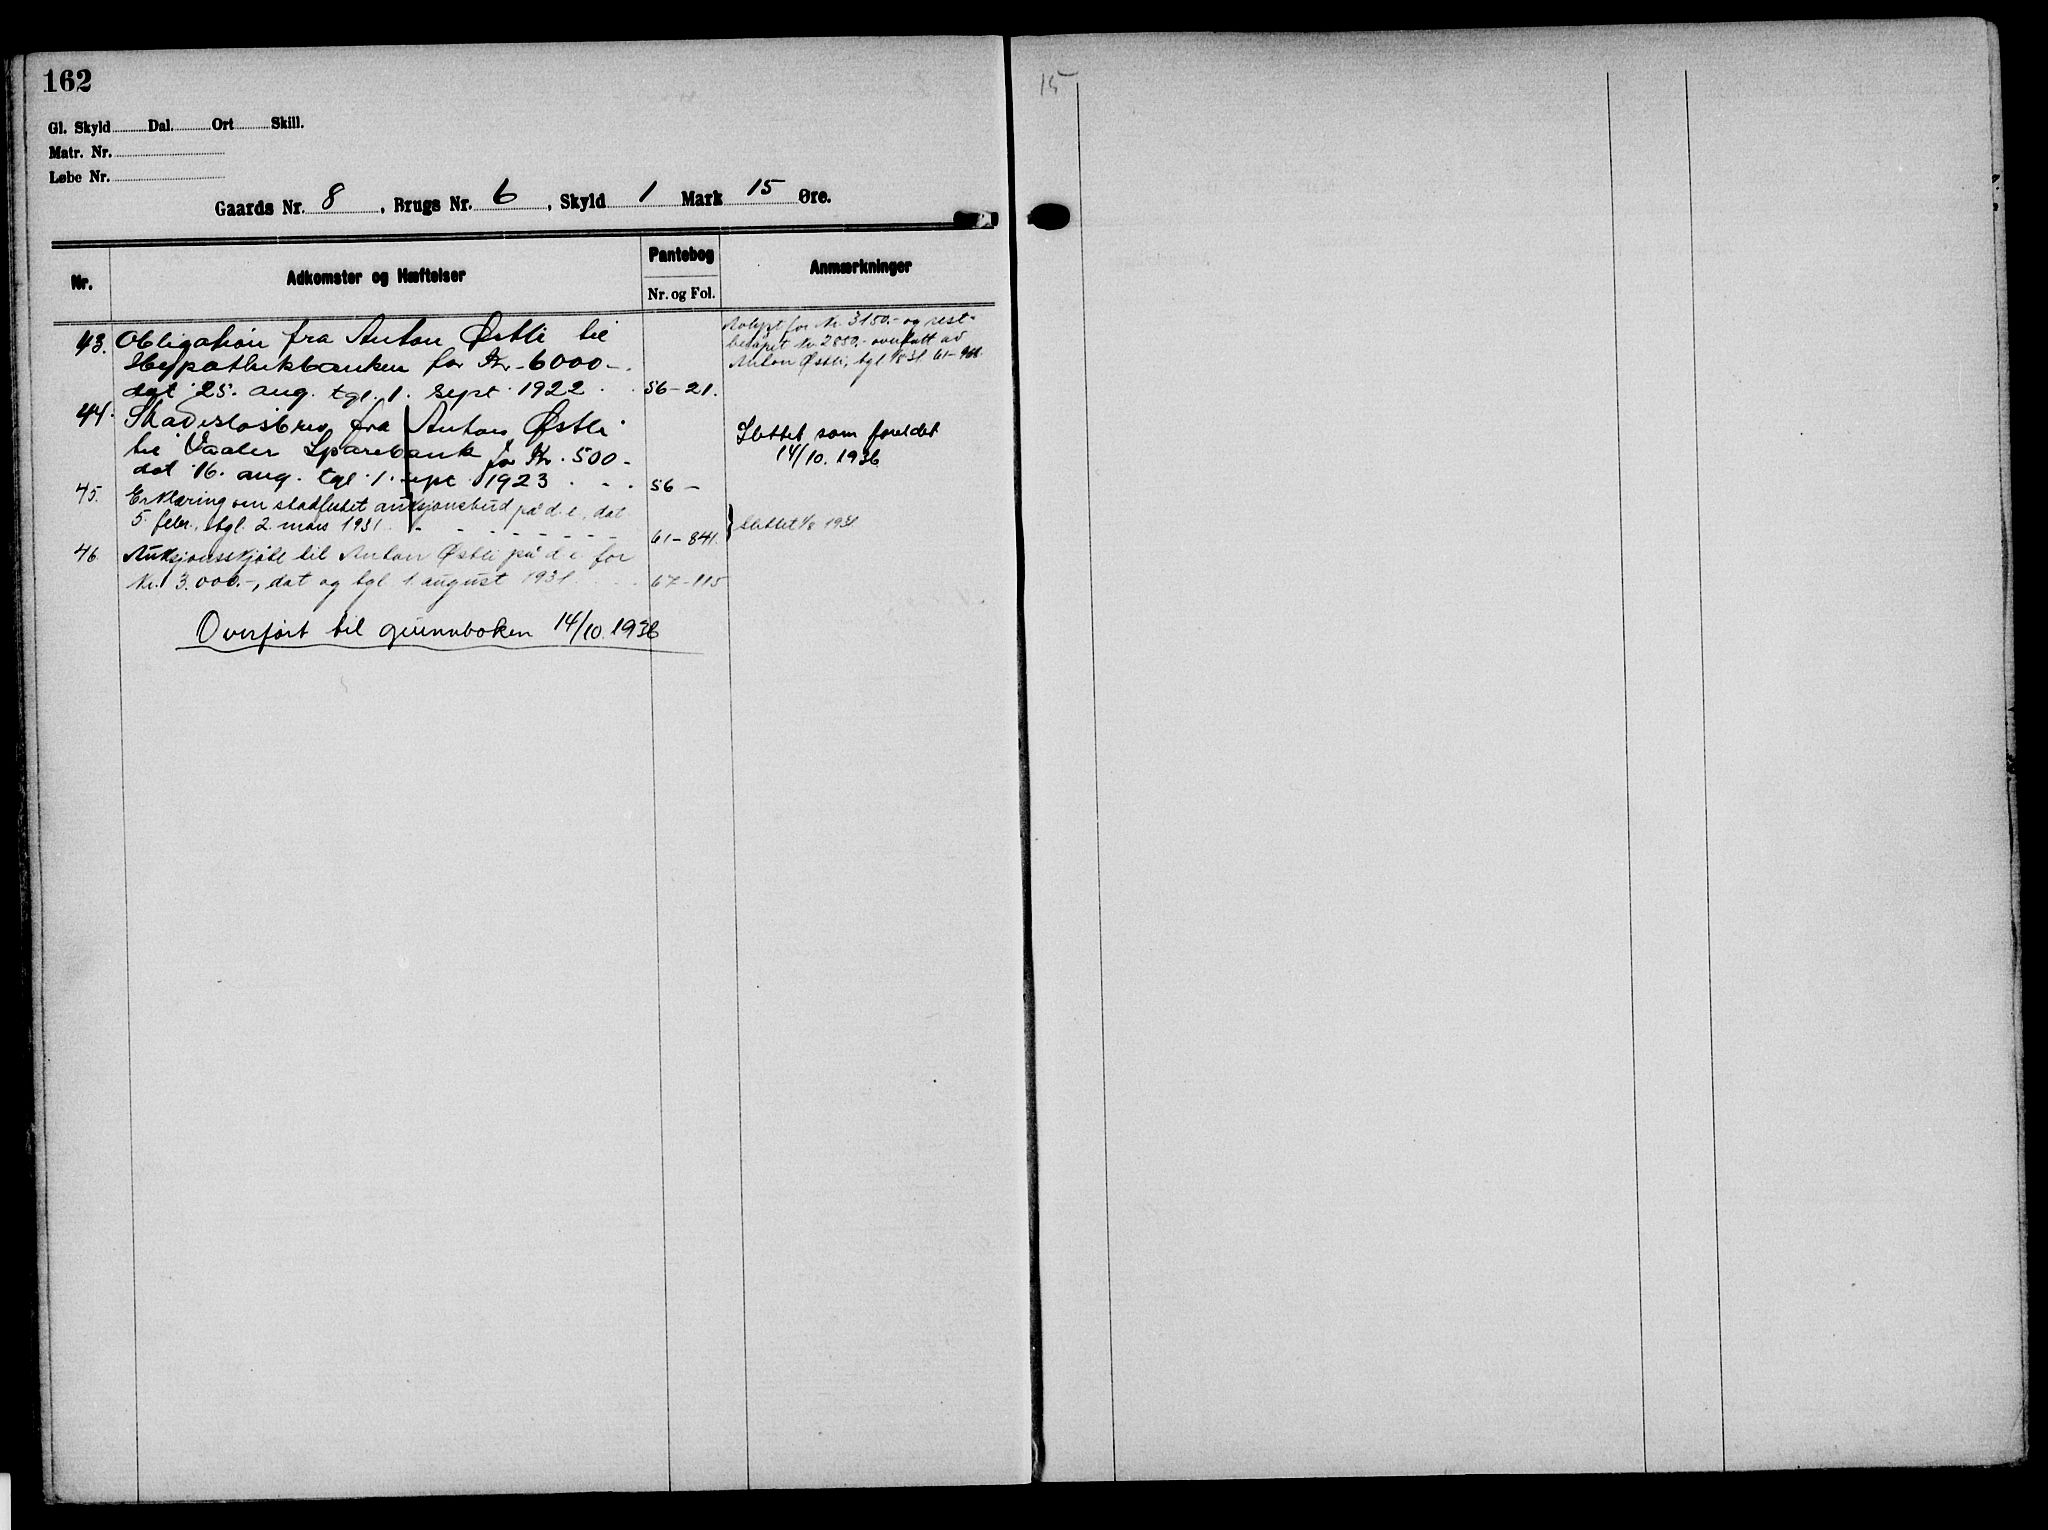 162
Gl. Skyld Dal. Ort Skill.
Matr. Nr.
Løbe Nr.
Gaards Nr. 8, Brugs Nr. 6, Skyld 1 Mark 15 Øre.
Nr. Adkomster og Hæftelser Pantebog Anmærkninger
Nr. og Fol.
43. Obligation fra Anton Østli til
Hypothekbanken for Kr. 6000.-
dat 25. aug. tgl. 1. sept. 1922 56-21.
Avlyst for Kr. 3150.- og rest-
beløpet Kr. 2850.- overtatt av
Anton Østli, tgl. 1/8 31 61-
44. Skadesløsbrev fra Anton Østli
til Vaaler Sparebank for Kr. 500-
dat 16. aug. tgl. 1. sept 1923 56-
Slettet som foreldet
14/10. 1936
45. Erklæring om stadfestet auksjonsbud på d. e., dat.
5. febr., tgl. 2. mars 1931. 61-841.
Slettet 1/8 1931.
46 Auksjonsskjøte til Anton Østli på d. e. for
Kr. 3.000.-, dat og tgl. 1 august 1931. 67-115
Overført til grunnboken 14/10. 1936
15